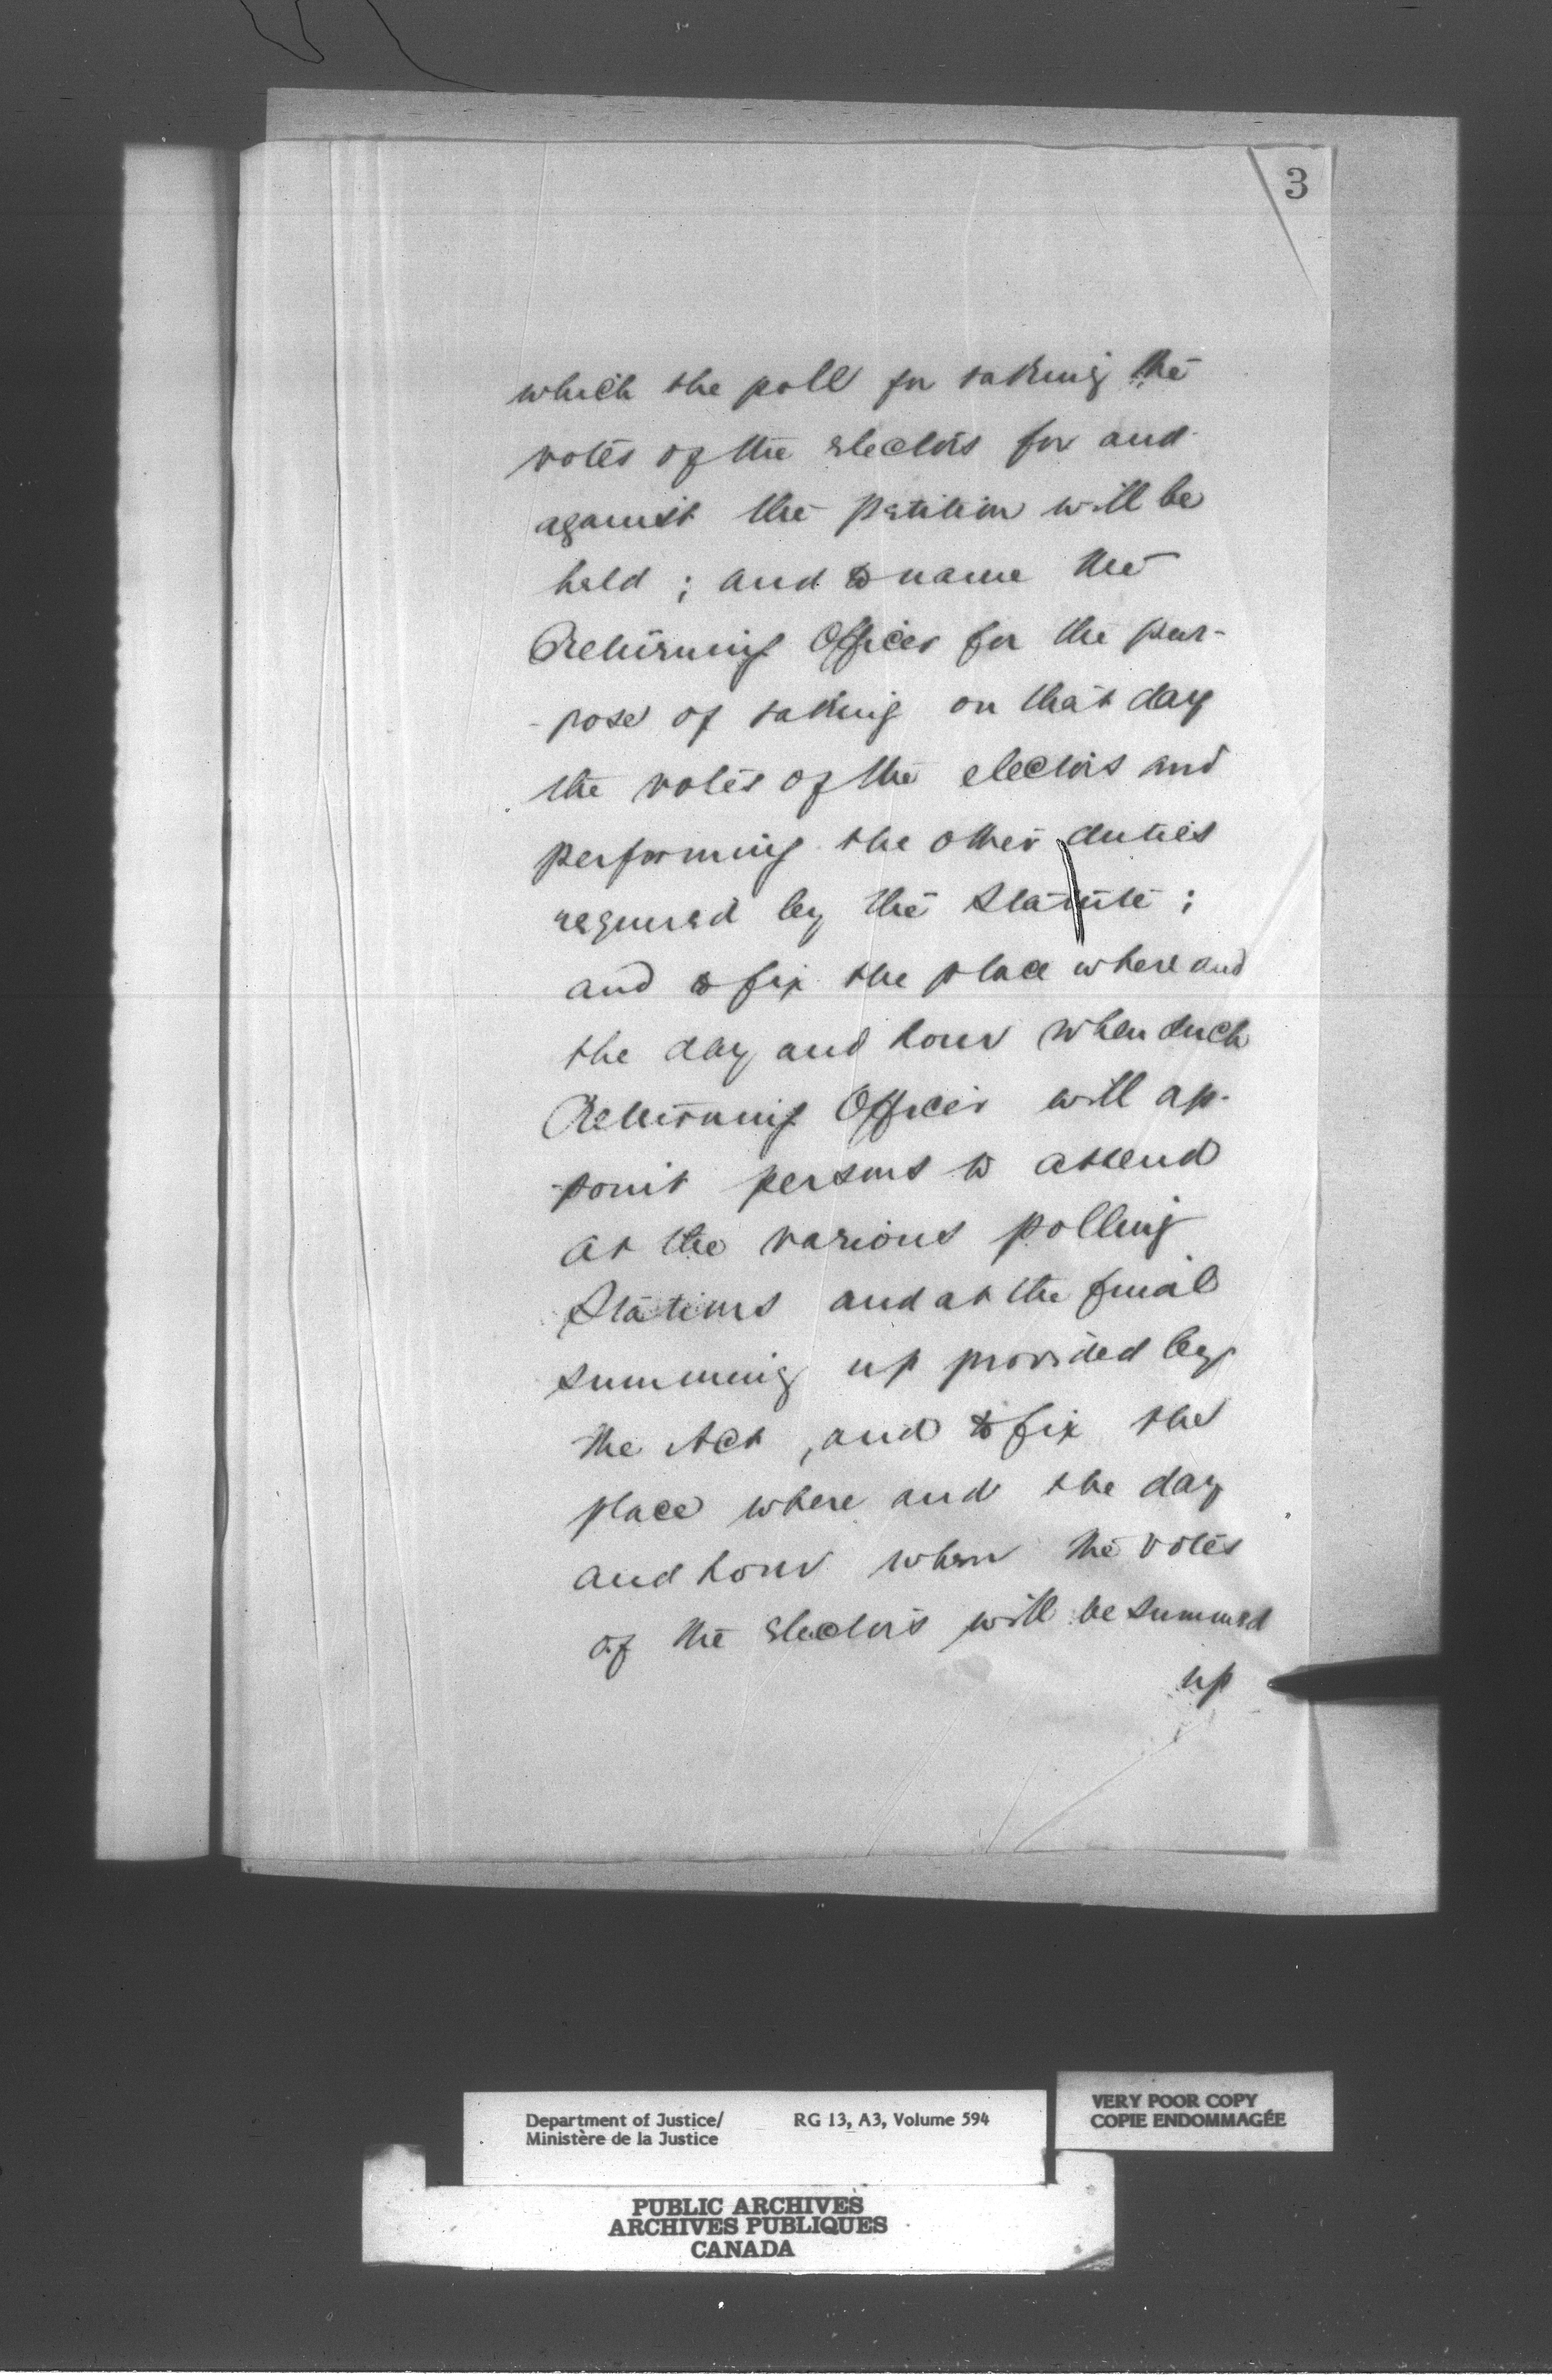 3
which the poll for taking the
votes of the electors for and
against the petition will be
held ; and to name the
Returning Officer for the pur-
-pose of taking on that day
the votes of the electors and
performing the other duties
required by the Statute ;
and to fix the place where and
the day and hour when such
Returning Officer will ap-
-point persons to attend
at the various polling
Stations and at the final
summing up provided by
the Act , and to fix the
place where and the day
and hour when the votes
of the electors will be summed
up
Department of Justice/
Ministère de la Justice
RG 13, A3, Volume 594
VERY POOR COPY
COPIE ENDOMMAGÉE
PUBLIC ARCHIVES
ARCHIVES PUBLIQUES
CANADA